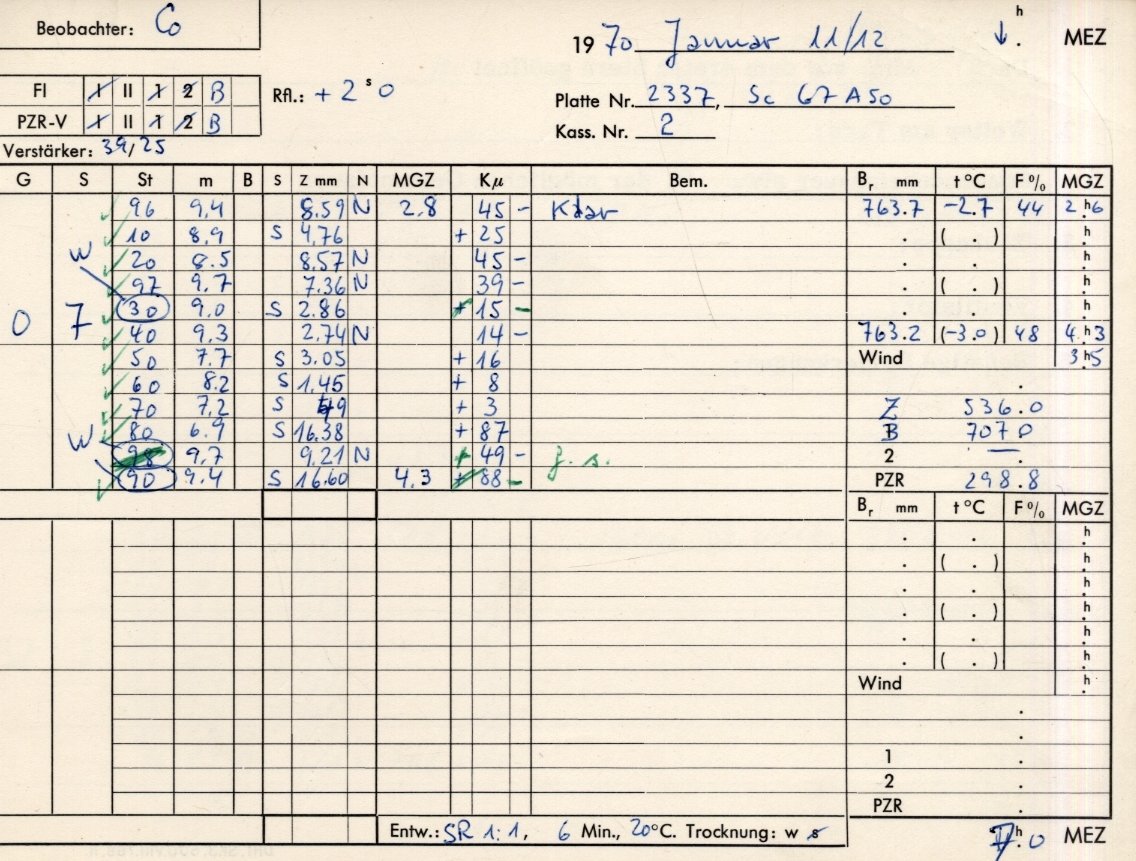 Beobachter: Co
h
19 70 Januar 11/12 ↓. MEZ
FI 1 II 1 2 B
Rfl.: + 2 s 0
Platte Nr. 2337, Sc 67 A 50
PZR-V 1 II 1 2 B
Kass. Nr. 2
Verstärker: 39/25
G S St m B S Z mm N MGZ Kμ Bem. Br mm t °C F % MGZ
96 9,4 8.59 N 2.8 45 - Klar 763.7 -2.7 44 2.h6
10 8,9 S 4,76 + 25 . ( . ) .h
W 20 8.5 8.57 N 45 - . . .h
97 9,7 7.36 N 39 - . ( . ) .h
30 9,0 S 2.86 + 15 - . . .h
0 7 40 9,3 2.74 N 14 - 763.2 (-3.0) 48 4.h3
50 7.7 S 3.05 + 16 Wind 3h5
60 8.2 S 1.45 + 8 .
70 7,2 S 49 + 3 Z 536.0
W 80 6.9 S 16.38 + 87 B 707 0
98 9,7 9.21 N + 49 - f. s. 2 .
90 9.4 S 16.60 4.3 + 88 - PZR 298.8
Br mm t °C F % MGZ
. . .h
. ( . ) .h
. . .h
. ( . ) .h
. . .h
. ( . ) .h
Wind .h
.
.
1 .
2 .
PZR .
Entw.: SR 1:1, 6 Min., 20 °C. Trocknung: w s
7.h0 MEZ